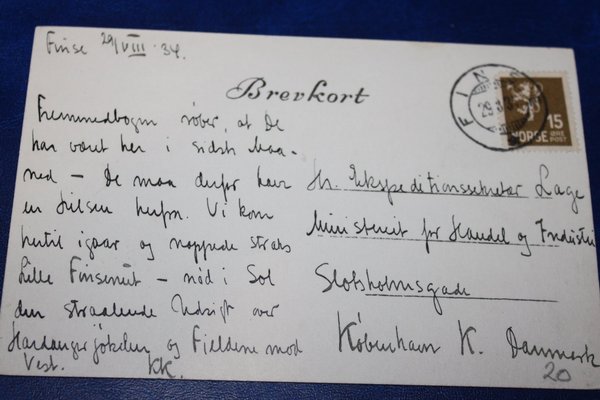 Finse 29/VIII · 34.
Brevkort
Fremmedbogen røber, at De
har været her i sidste Maa-
ned – De maa derfor have
en Hilsen herfra. Vi kom
hertil igaar og nappede straks
Lille Finsenut – nød i Sol
den straalende Udsigt over
Hardangerjøkelen og Fjeldene mod
Vest. KK.
FINSE
29.8.34
15
NORGE ØRE
POST
Hr. Ekspeditionssekretær Lage
Ministeriet for Handel og Industri
Slotsholmsgade
København K. Danmark
20